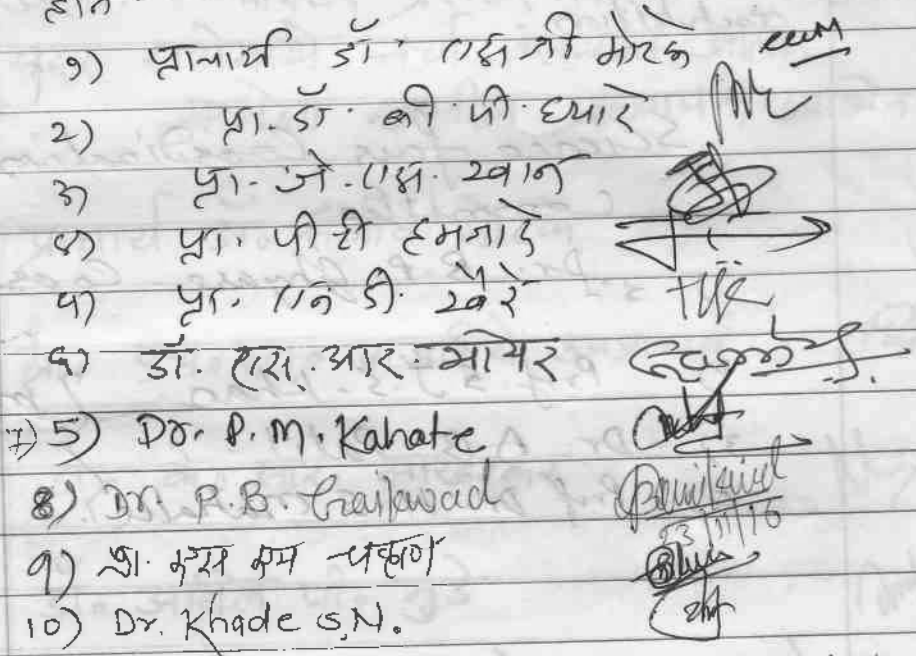 होते
१) प्राचार्य डॉ. एस जी मोरके
2) प्रा. डॉ. बी. पी. घ्यारे
3) प्रा. जे. एस. खान
४) प्रा. पी टी हमजादे
५) प्रा. एन डी. खैरे
६) डॉ. एस. आर. भोयर
7) 5) Dr. P. M. Kahate
8) Dr. P. B. Gaikwad
23/11/16
9) प्रा. एस एम चव्हाण
10) Dr. Khade S.N.